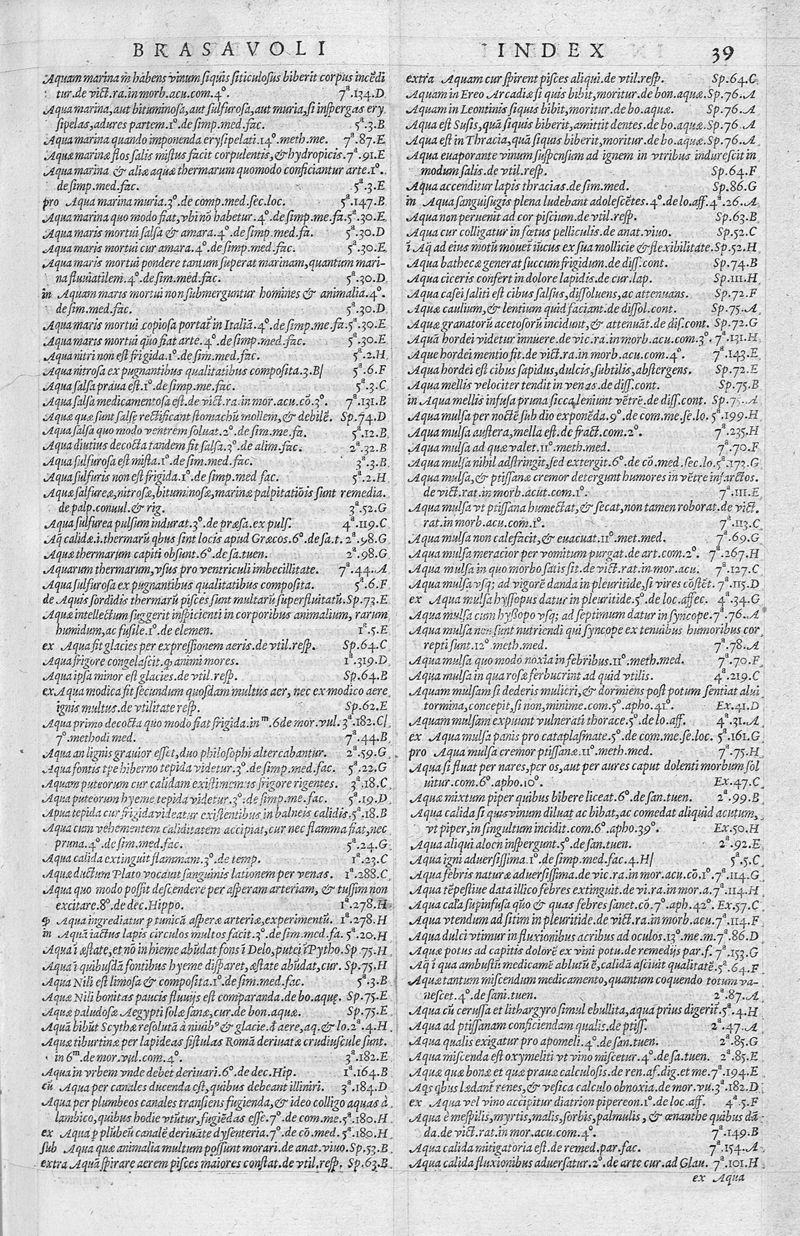 BRASAVOLI
Aquam marina m̄ habens vinum siquis siticulosus biberit corpus incēdi
tur.de vict.ra.in morb.acu.com.4°. 7ª.134.D
Aqua marina,aut bituminosa,aut sulfurosa,aut muria,si inspergas ery
sipelas,adures partem.1°.de simp.med.fac. 5ª.3.B
Aqua marina quando imponenda erysipelati.14°.meth.me. 7ª.87.E
Aquæ marinæ flos salis mistus facit corpulentis,& hydropicis.7ª.91.E
Aqua marina & aliæ aquæ thermarum quomodo conficiantur arte.1°.
de simp.med.fac. 5ª.3.E
pro Aqua marina muria.3°.de comp.med.sec.loc. 5ª.147.B
Aqua marina quo modo fiat,vbi nō habetur.4°.de simp.me.fa.5ª.30.E
Aqua maris mortui salsa & amara.4°.de simp.med.fa. 5ª.30.D
Aqua maris mortui cur amara.4°.de simp.med.fac. 5ª.30.E
Aqua maris mortui pondere tantum superat marinam,quantum mari-
na fluuiatilem.4°.de sim.med.fac. 5ª.30.D
in Aquam maris mortui non submerguntur homines & animalia.4°.
de sim.med.fac. 5ª.30.D
Aqua maris mortui copiosa portat' in Italiā.4°.de simp.me fa.5ª.30.E
Aqua maris mortui quo fiat arte.4°.de simp.med.fac. 5ª.30.E
Aqua nitri non est frigida.1°.de sim.med.fac. 5ª.2.H
Aqua nitrosa ex pugnantibus qualitatibus composita.3.B| 5ª.6.F
Aqua salsa praua est.1°.de simp.me.fac. 5ª.3.C
Aqua salsa medicamentosa est.de vict.ra.in mor.acu.cō.3°. 7ª.131.B
Aquæ quæ sunt salsæ rectificant stomachū mollem,& debilē. Sp.74.D
Aqua salsa quo modo ventrem soluat.2°.de sim.me.fa. 5ª.12.B
Aqua diutius decocta tandem fit salsa.3°.de alim.fac. 2ª.32.B
Aqua sulfurosa est mista.1°.de sim.med.fac. 3ª.3.B
Aqua sulfuris non est frigida.1°.de simp.med fac. 5ª.2.H
Aquæ sulfureæ,nitrosæ,bituminosæ,marinæ palpitatiōis sunt remedia.
de palp.conuul.& rig. 3ª.52.G
Aqua sulfurea pulsum indurat.3°.de præsa.ex puls. 4ª.119.C
Aq̄ calidæ.i.thermarū qbus sint locis apud Græcos.6°.de sa.t. 2ª.98.G
Aquæ thermarum capiti obsunt.6°.de sa.tuen. 2ª.98.G
Aquarum thermarum,vsus pro ventriculi imbecillitate. 7ª.44.A
Aqua sulfurosa ex pugnantibus qualitatibus composita. 5ª.6.F
de Aquis sordidis thermarū pisces sunt multarū superfluitatū.Sp.73.E
Aquæ intellectum suggerit inspicienti in corporibus animalium, rarum
humidum,ac fusile.1°.de elemen. 1ª.5.E
ex Aqua fit glacies per expressionem aeris.de vtil.resp. Sp.64.C
Aqua frigore congelascit.q animi mores. 1ª.319.D
Aqua ipsa minor est glacies.de vtil.resp. Sp.64.B
ex Aqua modica fit secundum quosdam multus aer, nec ex modico aere
ignis multus.de vtilitate resp. Sp.62.E
Aqua primo decocta quo modo fiat frigida.in m.6de mor.vul.3ª.182.C|
7°.methodi med. 7ª.44.B
Aqua an lignis grauior esset,duo philosophi altercabantur. 2ª.59.G
Aqua fontis tpe hiberno tepida videtur.3°.de simp.med.fac. 5ª.22.G
Aquam puteorum cur calidam existimemus frigore rigentes. 3ª.18.C
Aqua puteorum hyeme tepida videtur.3°.de simp.me.fac. 5ª.19.D
Apua tepida cur frigida videatur existentibus in balneis calidis.5ª.18.B
Aqua cum vehementem caliditatem accipiat,cur nec flamma fiat,nec
pruna.4°.de sim.med.fac. 5ª.24.G
Aqua calida extinguit flammam.3°.de temp. 1ª.23.C
Aquæ ductum Plato vocauit sanguinis lationem per venas. 1ª.288.C
Aqua quo modo possit descendere per asperam arteriam, & tussim non
excitare.8°.de dec.Hippo. 1ª.278.H
q Aqua ingrediatur p tunicā asperæ arteriæ,experimentū. 1ª.278.H
in Aquā iactus lapis circulos multos facit.3°.de sim.med.fa. 5ª.20.H
Aqua ī æstate,et nō in hieme abūdat fons ī Delo,putei ī Pytho.Sp 75.H
Aqua ī quibusdā fontibus hyeme disparet,æstate abūdat,cur. Sp.75.H
Aqua Nili est limosa & composita.1°.de sim.med.fac. 5ª.3.B
Aquæ Nili bonitas paucis fluuijs est comparanda.de bo.aquę. Sp.75.E
Aquæ paludosæ Aegypti solæ sanæ,cur.de bon.aquæ. Sp.75.E
Aquā bibūt Scythæ resolutā à niuib° & glacie.d aere,aq.& lo.2ª.4.H
Aquæ tiburtinæ per lapideas fistulas Romā deriuatæ crudiusculæ sunt.
in 6m.de mor.vul.com.4°. 3ª.182.E
Aqua in vrbem vnde debet deriuari.6°.de dec.Hip. 1ª.164.B
cū Aqua per canales ducenda est,quibus debeant illiniri. 3ª.184.D
Aqua per plumbeos canales transiens fugienda,& ideo colligo aquas à
lambico,quibus hodie vtūtur,fugiēdas esse.7°.de com.me.5ª.180.H
ex Aqua p plūbeū canalē deriuāte dysenteria.7°.de cō.med. 5ª.180.H
sub Aqua quæ animalia multum possunt morari.de anat.viuo.Sp.53.B
extra Aquā spirare aerem pisces maiores constat.de vtil.resp. Sp.63.B
INDEX 39
extra Aquam cur spirent pisces aliqui.de vtil.resp. Sp.64.C
Aquam in Ereo Arcadiæ si quis bibit,moritur.de bon.aquæ.Sp.76.A
Aquam in Leontinis siquis bibit,moritur.de bo.aquæ. Sp.76.A
Aqua est Susis,quā siquis biberit,amittit dentes.de bo.aquæ.Sp.76.A
Aqua est in Thracia,quā siquis biberit,moritur.de bo.aquæ. Sp.76.A
Aqua euaporante vinum suspensum ad ignem in vtribus indurescit in
modum salis.de vtil.resp. Sp.64.F
Aqua accenditur lapis thracias.de sim.med. Sp.86.G
in Aqua sanguisugis plena ludebant adolescētes.4°.de lo.aff.4ª.26.A
Aqua non peruenit ad cor piscium.de vtil.resp. Sp.63.B
Aqua cur colligatur in fœtus pelliculis.de anat.viuo. Sp.52.C
ī Aq̄ ad eius motū mouet' iūcus ex sua mollicie & flexibilitate.Sp.52.H
Aqua bathecæ generat succum frigidum.de diff.cont. Sp.74.B
Aqua ciceris confert in dolore lapidis.de cur.lap. Sp.111.H
Aqua casei saliti est cibus salsus,dissoluens,ac attenuans. Sp.72.F
Aquæ caulium,& lentium quid faciant.de dissol.cont. Sp.75.A
Aquæ granatorū acetosorū incidunt,& attenuāt.de dis.cont. Sp.72.G
Aquā hordei videtur innuere.de vic ra.in morb.acu.com.3°. 7ª.131.H
Aque hordei mentio fit.de vict.ra.in morb.acu.com.4°. 7ª.143.E
Aqua hordei est cibus sapidus,dulcis,subtilis,abstergens. Sp.72.E
Aqua mellis velociter tendit in venas.de diff.cont. Sp.75.B
in Aqua mellis infusa pruna sicca,leniunt vētrē.de diff.cont. Sp.75.A
Aqua mulsa per noctē sub dio exponēda.9°.de com.me.se.lo.5ª.199.H
Aqua mulsa austera,mella est.de fract.com.2°. 7ª.235.H
Aqua mulsa ad quæ valet.11°.meth.med. 7ª.70.F
Aqua mulsa nihil adstringit,sed extergit.6°.de cō.med.sec.lo.5ª.173.G
Aqua mulsa,& ptissanæ cremor detergunt humores in vētre infarctos.
de vict.rat.in morb.acut.com.1°. 7ª.111.E
Aqua mulsa vt ptissana humectat,& secat,non tamen roborat.de vict.
rat.in morb.acu.com.1°. 7ª.113.C
Aqua mulsa non calefacit,& euacuat.11°.met.med. 7ª.69.G
Aqua mulsa meracior per vomitum purgat.de art.com.2°. 7ª.267.H
Aqua mulsa in quo morbo satis sit.de vict.rat.in mor.acu. 7ª.127.C
Aqua mulsa vsq; ad vigorē danda in pleuritide,si vires cōstēt. 7ª.115.D
ex Aqua mulsa hyssopus datur in pleuritide.5°.de loc.affec. 4ª.34.G
Aqua mulsa cum hyssopo vsq; ad septimum datur in syncope.7ª.76.A
Aqua mulsa non sunt nutriendi qui syncope ex tenuibus humoribus cor
repti sunt.12°.meth.med. 7ª.78.A
Aqua mulsa quo modo noxia in febribus.11°.meth.med. 7ª.70.F
Aqua mulsa in qua rosæ ferbucrint ad quid vtilis. 4ª.219.C
Aquam mulsam si dederis mulieri,& dormiens post potum sentiat alui
tormina,concepit,si non,minime.com.5°.apho.41°. Ex.41.D
Aquam mulsam expuunt vulnerati thorace.5°.de lo.aff. 4ª.31.A
ex Aqua mulsa panis pro cataplasmate.5°.de com.me.se.loc. 5ª.161.G
pro Aqua mulsa cremor ptissanæ.11°.meth.med. 7ª.75.H
Aqua si fluat per nares,per os,aut per aures caput dolenti morbum sol
uitur.com.6°.apho.10°. Ex.47.C
Aquæ mixtum piper quibus bibere liceat.6°.de san.tuen. 2ª.99.B
Aqua calida si quis vinum diluat ac bibat,ac comedat aliquid acutum,
vt piper,in singultum incidit.com.6°.apho.39°. Ex.50.H
Aqua aliqui aloen inspergunt.5°.de san.tuen. 2ª.92.E
Aqua igni aduersissima.1°.de simp.med.fac.4.H| 5ª.5.C
Aqua febris naturæ aduersissima.de vic.ra.in mor.acu.cō.1°.7ª.114.G
Aqua tēpestiue data illico febres extinguit.de vi.ra.in mor.a.7ª.114.H
Aqua cal'a supinfusa quo & quas febres sanet.cō.7°.aph.42°. Ex.57.C
Aqua vtendum ad sitim in pleuritide.de vict.ra.in morb.acu.7ª.114.F
Aqua dulci vtimur in fluxionibus acribus ad oculos.13°.me.m.7ª.86.D
Aquæ potus ad capitis dolorē ex vini potu.de remedijs par.f. 7ª.153.G
Aq̄ ī qua ambustū medicamē ablutū ē,calidā asciuit qualitatē.5ª.64.F
Aquæ tantum miscendum medicamento,quantum coquendo totum va-
nescet.4°.de sani.tuen. 2ª.87.A
Aqua cū cerussa et lithargyro simul ebullita,aqua prius digerit'.5ª.4.H
Aqua ad ptissanam conficiendam qualis.de ptiss. 2ª.47.A
Aqua qualis exigatur pro apomeli.4°.de san.tuen. 2ª.85.G
Aqua miscenda est oxymeliti vt vino miscetur.4°.de sa.tuen. 2ª.85.E
Aquæ quæ bonæ et quæ prauæ calculosis.de ren.af.dig.et me.7ª.194.E
Aqs qbus lædant' renes,& vesica calculo obnoxia.de mor.vu.3ª.182.D
ex Aqua vel vino accipitur diatrion pipereon.1°.de loc.aff. 4ª.5.F
Aqua è mespilis,myrtis,malis,sorbis,palmulis, & œnanthe quibus dā
da.de vict.rat.in mor.acu.com.4°. 7ª.149.B
Aqua calida mitigatoria est.de remed.par.fac. 7ª.154.A
Aqua calida fluxionibus aduersatur.2°.de arte cur.ad Glau. 7ª.101.H
ex Aqua